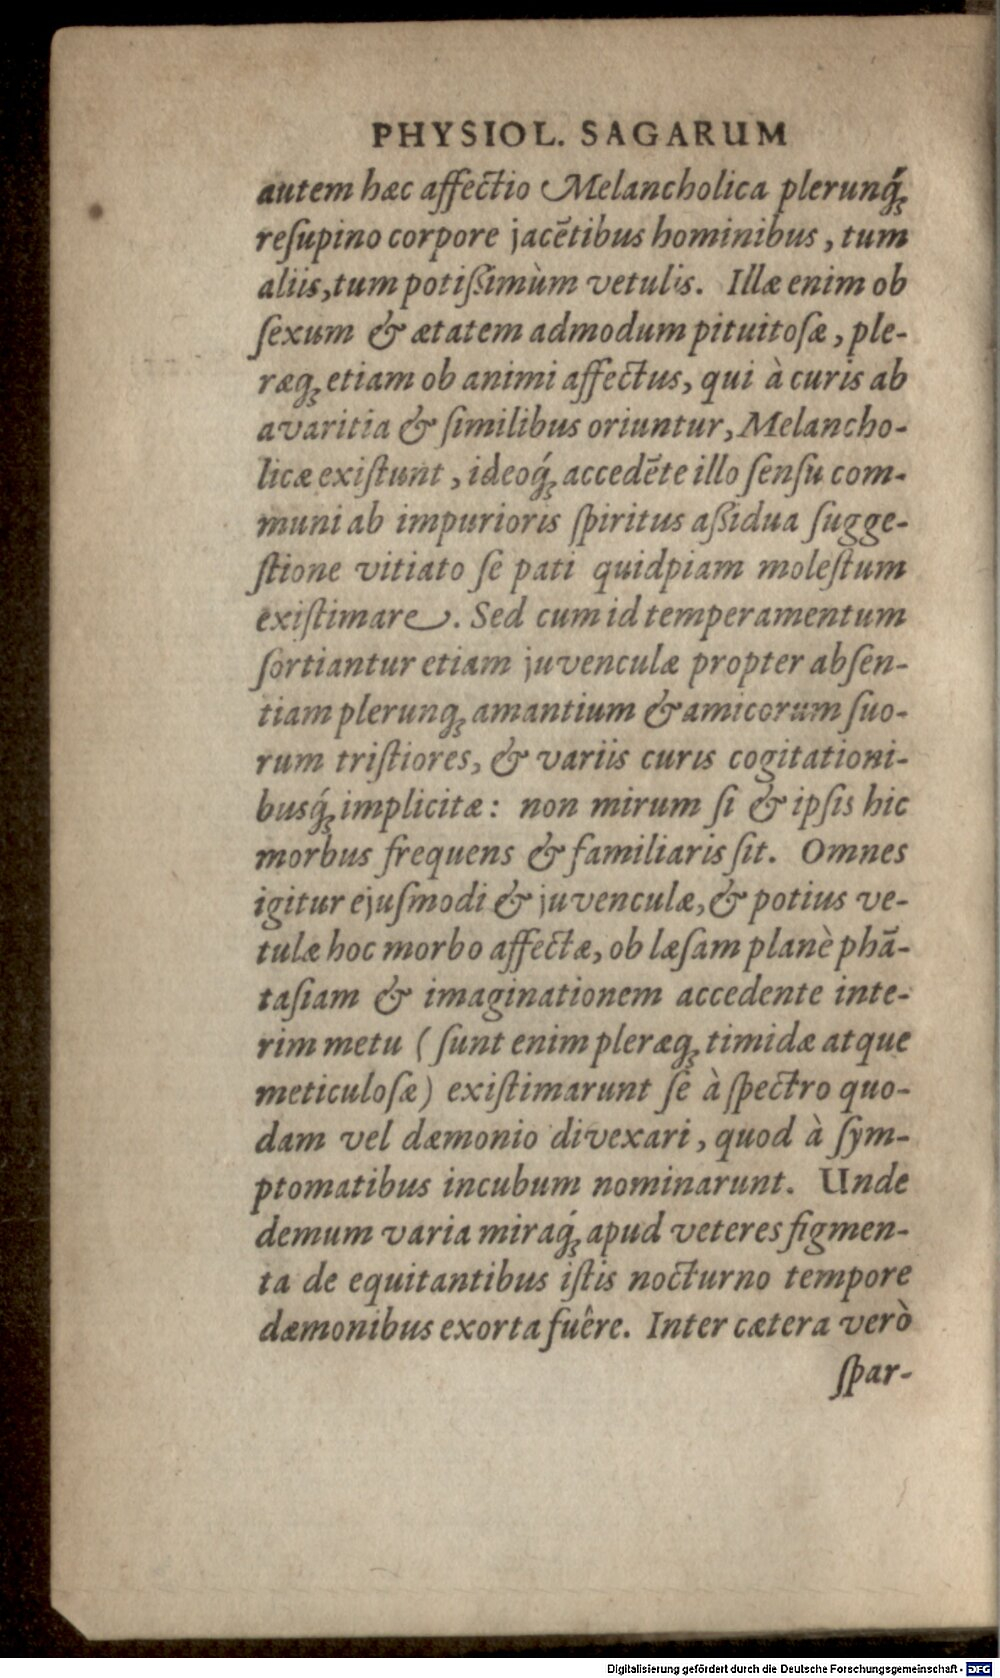 PHYSIOL. SAGARUM
autem hæc affectio Melancholica plerunq́ꝫ
reſupino corpore jacẽtibus hominibus, tum
aliis, tum potißimùm vetulis. Illæ enim ob
ſexum & ætatem admodum pituitoſæ, ple-
ræqꝫ etiam ob animi affectus, qui à curis ab
avaritia & ſimilibus oriuntur, Melancho-
licæ exiſtunt, ideoq́ꝫ accedẽte illo ſenſu com-
muni ab impurioris ſpiritus aßidua ſugge-
ſtione vitiato ſe pati quidpiam moleſtum
exiſtimare. Sed cum id temperamentum
ſortiantur etiam juvenculæ propter abſen-
tiam plerunqꝫ amantium & amicorum ſuo-
rum triſtiores, & variis curis cogitationi-
busq́ꝫ implicitæ: non mirum ſi & ipſis hic
morbus frequens & familiaris ſit. Omnes
igitur ejuſmodi & juvenculæ, & potius ve-
tulæ hoc morbo affectæ, ob læſam planè phã-
taſiam & imaginationem accedente inte-
rim metu (ſunt enim pleræqꝫ timidæ atque
meticuloſæ) exiſtimarunt ſe à ſpectro quo-
dam vel dæmonio divexari, quod à ſym-
ptomatibus incubum nominarunt. Unde
demum varia miraq́ꝫ apud veteres figmen-
ta de equitantibus iſtis nocturno tempore
dæmonibus exorta fuêre. Inter cætera verò
ſpar-
Digitalisierung gefördert durch die Deutsche Forschungsgemeinschaft - DFG